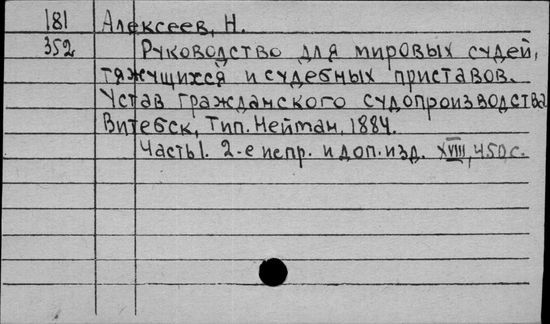 181 Алексеев, Н.
352 Руководство для мировых судей,
тяжущихся и судебных приставов.
Устав гражданского судопроизводства
Витебск, Тип. Нейман, 1884.
Часть 1. 2-е испр. и доп. изд. XVIII, 450 с.